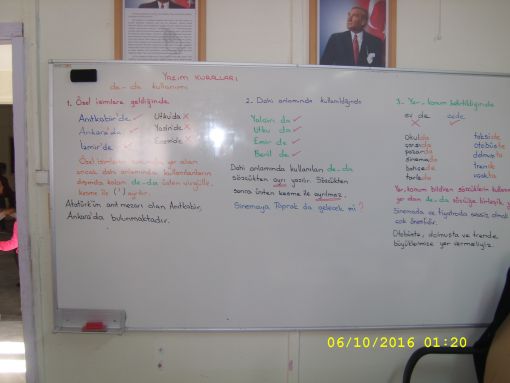 YAZIM KURALLARI
de-da kullanımı
1. Özel isimlere geldiğinde
Anıtkabir'de ✓ Utku'da ✗
Ankara'da ✓ Yasin'de ✗
İzmir'de ✓ Emir'de ✗
Özel isimlerin sonunda yer alan
ancak dahi anlamında kullanılanların
dışında kalan de-da üsten virgülle,
kesme ile (') ayrılır.
Atatürk'ün anıt mezarı olan Anıtkabir,
Ankara'da bulunmaktadır.
2. Dahi anlamında kullanıldığında
Yalçın da ✓
Utku da ✓
Emir de ✓
Beril de ✓
Dahi anlamında kullanılan de-da
sözcükten ayrı yazılır. Sözcükten
sonra üsten kesme ile ayrılmaz.
Sinemaya Toprak da gelecek mi?
3. Yer-konum belirttiğinde
ev de ✗ evde ✓
okulda takside
çarşıda otobüste
pazarda dolmuşta
sinemada trende
bahçede uçakta
tarlada
Yer, konum bildiren sözcüklerin
yer alan de-da sözcüğe birleşik
Sinemada ve tiyatroda sessiz olmak
çok önemlidir.
Otobüste, dolmuşta ve trende
büyüklerimize yer vermeliyiz.
06/10/2016 01:20